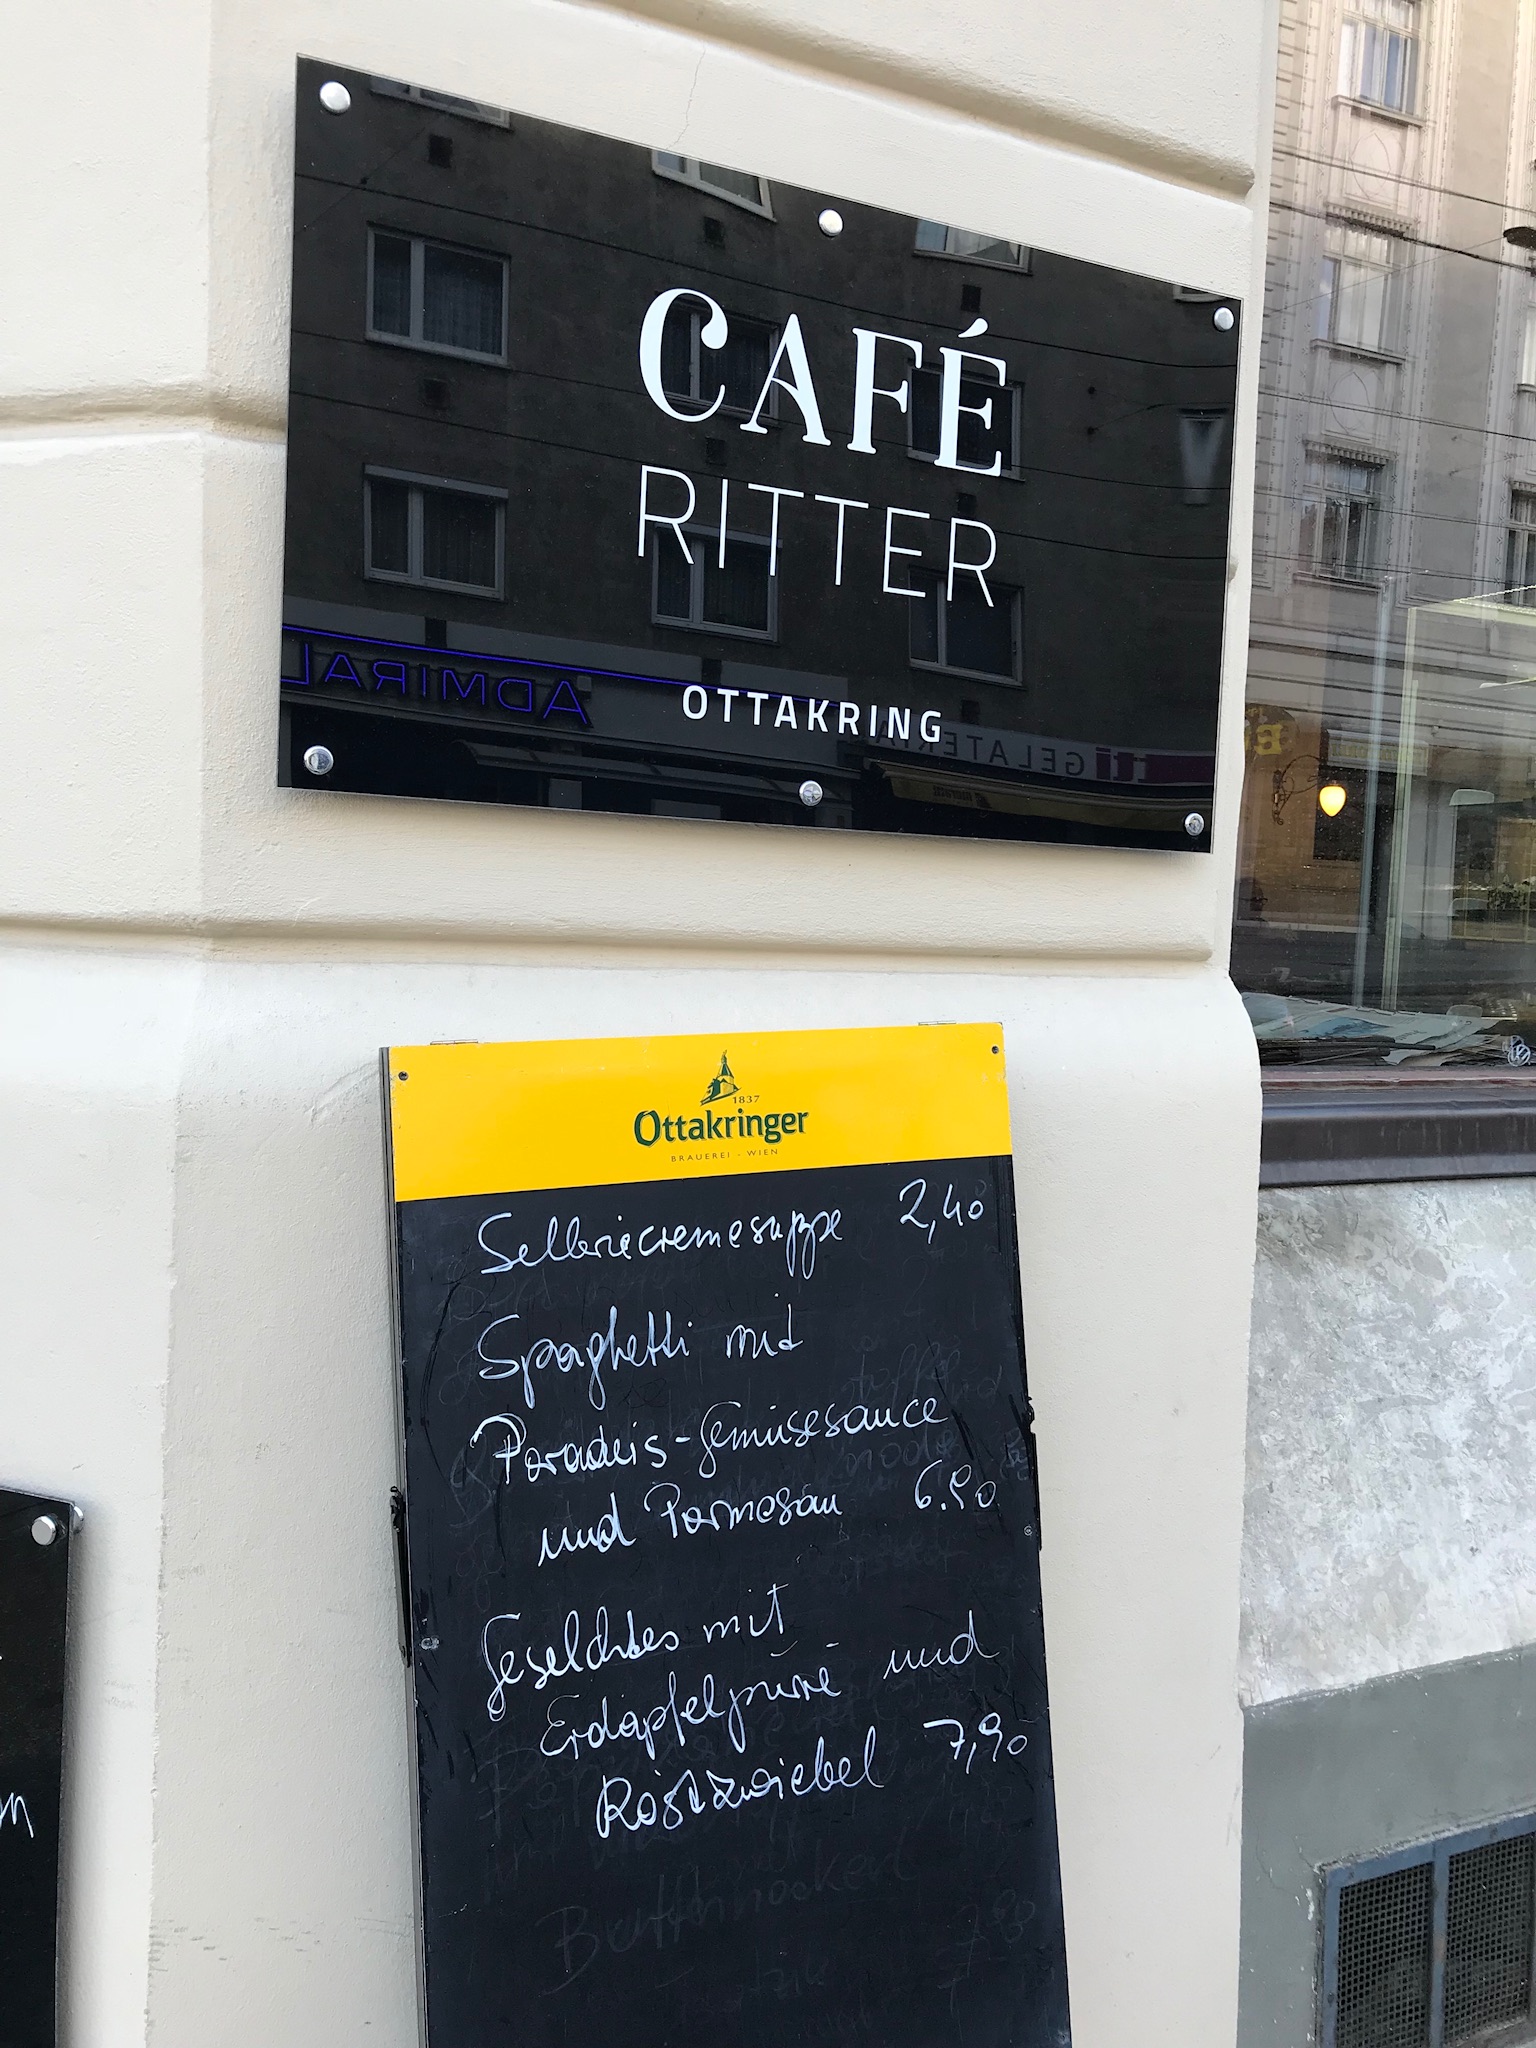 CAFÉ
RITTER
OTTAKRING
ADMIRAL
GELATERIA
1837
Ottakringer
BRAUEREI - WIEN
Selleriecremesuppe 2,40
Spaghetti mit
Paradeis-Gemüsesauce
und Parmesan 6.90
Geselchtes mit
Erdäpfelpüree und
Röstzwiebel 7,90